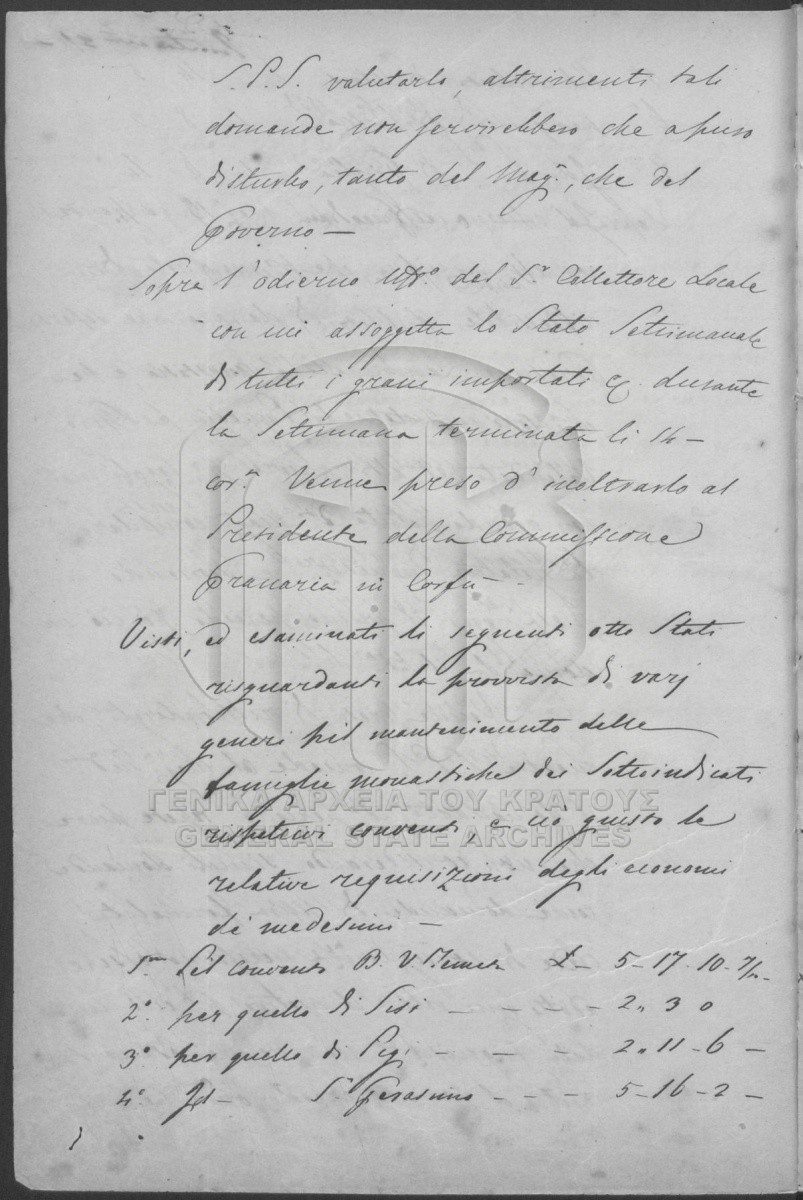 S.P.S. valutarlo, altrimenti tali
domande non servirebbero che a puro
disturbo, tanto del Mag.º, che del
Governo —
Sopra l'odierno uff.º del S.r Collettore Locale
con cui assoggetta lo Stato Settimanale
di tutti i grani importati &. durante
la Settimana terminata li 14 —
cor.e Venne preso d'inoltrarlo al
Presidente della Commissione
Granaria in Corfù —
Visti, ed esaminati li seguenti otto Stati
risguardanti la provvista di varj
generi pel mantenimento delle
famiglie monastiche dei Sottoindicati
ΓΕΝΙΚΑ ΑΡΧΕΙΑ ΤΟΥ ΚΡΑΤΟΥΣ
GENERAL STATE ARCHIVES
rispetivi conventi, e ciò giusto le
relative requisizioni degli economi
de' medesimi —
1.mo Pel convento B. V. £ — 5 - 17 - 10
2.º per quello di Sisi — — — 2 „ 3 0
3.º per quello di Pigi — — — 2 „ 11 - 6 —
4.º Id — S.n Gerasimo - - - 5 - 16 - 2 —